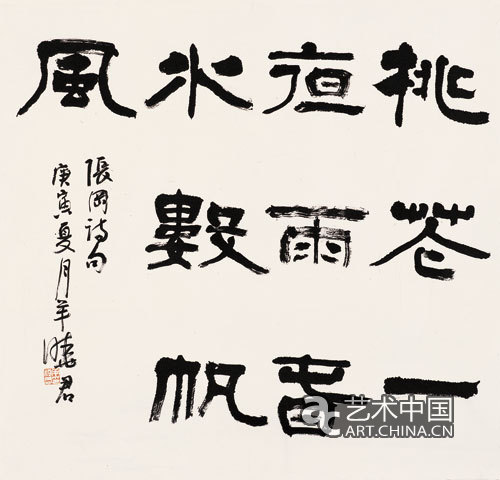 桃花一
夜雨旾
水數帆
風
張岡诗句
庚寅夏月羊晓君
艺术中国
ART.CHINA.CN